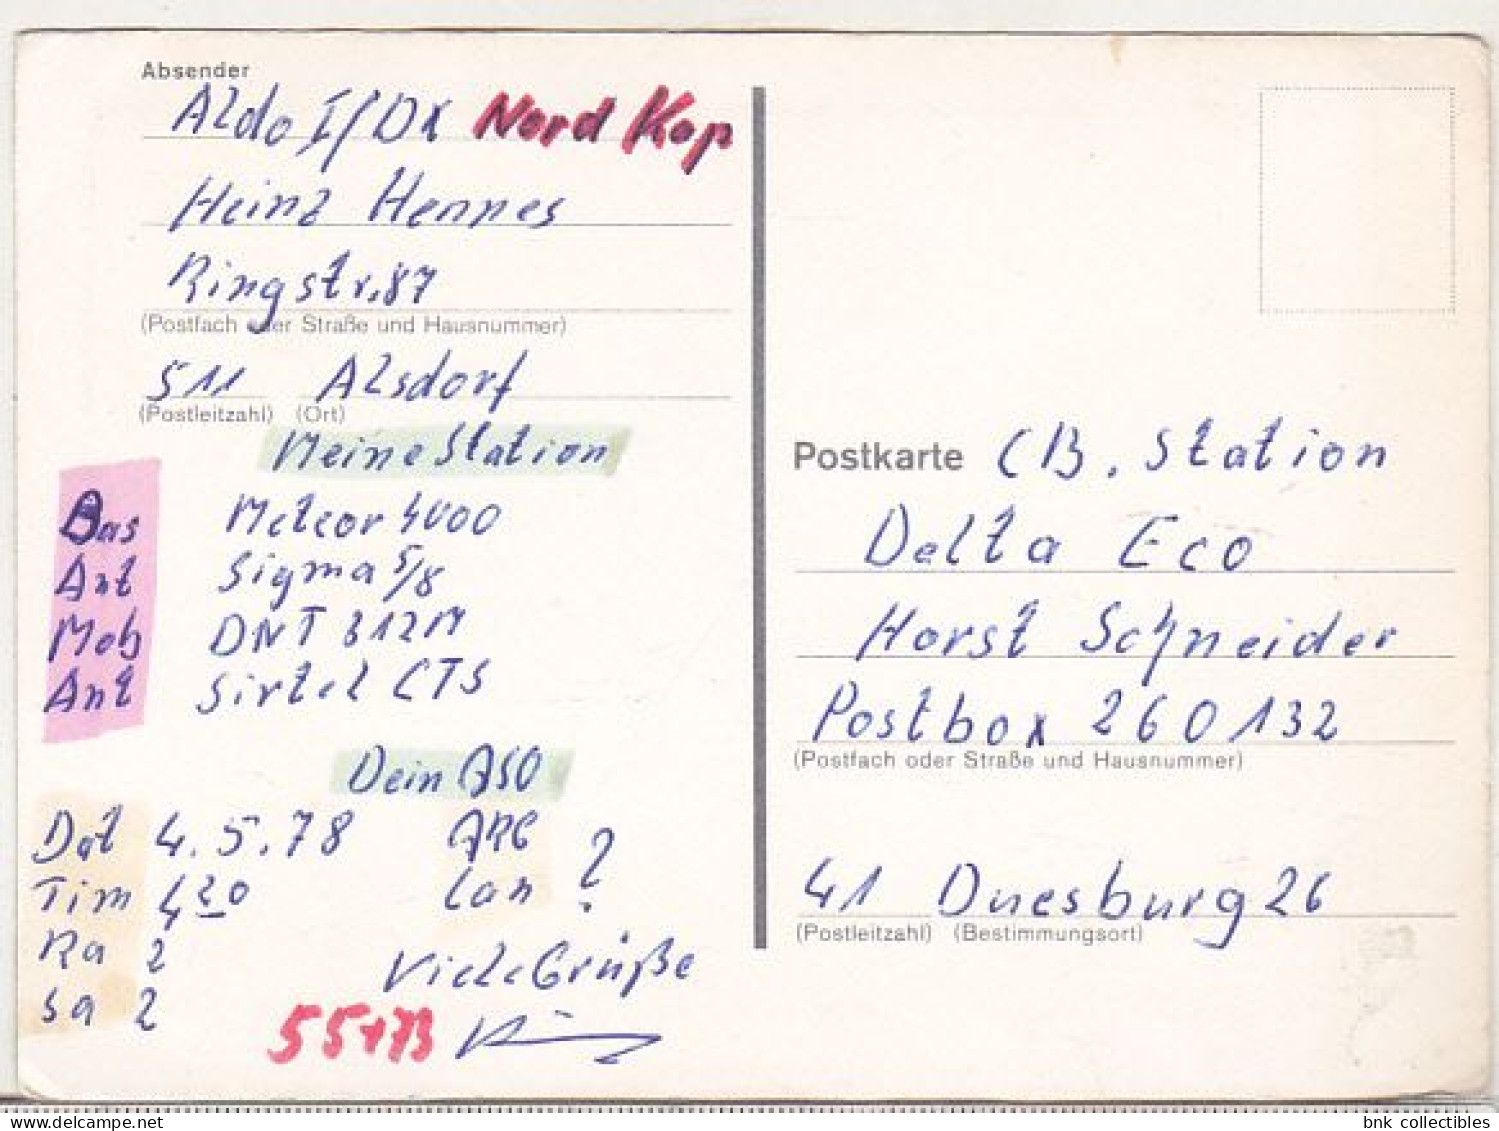 Absender
Aldo I/DX Nord Kap
Heinz Hennes
Ringstr. 87
(Postfach oder Straße und Hausnummer)
511 Alsdorf
(Postleitzahl) (Ort)
Meine Station
Bas Meteor 4000
Ant Sigma 5/8
Mob DNT 312M
Ant Sirtel CTS
Dein QSO
Dat 4.5.78 QRG
Tim 4 20 Can ?
Ra 2
Sa 2
Viele Grüße
55+73
Postkarte CB. Station
Delta Eco
Horst Schneider
Postbox 260132
(Postfach oder Straße und Hausnummer)
41 Duesburg 26
(Postleitzahl) (Bestimmungsort)
delcampe.net
bnk collectibles